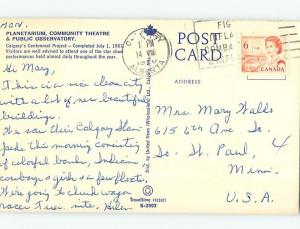 MON.
PLANETARIUM, COMMUNITY THEATRE
& PUBLIC OBSERVATORY.
Calgary's Centennial Project – Completed July 1, 1967.
Visitors are well advised to attend one of the star show
performances held almost daily throughout the year.
Hi Mary,
This is a nice clean city
with a lot of new beautiful
buildings.
We saw their Calgary Stam-
pede this morning consisting
of colorful bands, Indians,
cowboys & girls & few floats.
We're going to chuck wagon
races Tues. nite, Helen
Traveltime
S-2997
POST
CARD
ADDRESS
1 PM
14 VII
ALBERTA
FIG
COMBA
6
CANADA
Mrs. Mary Walls
615 6th Ave. So.
So. St. Paul, 4
Minn.
U.S.A.